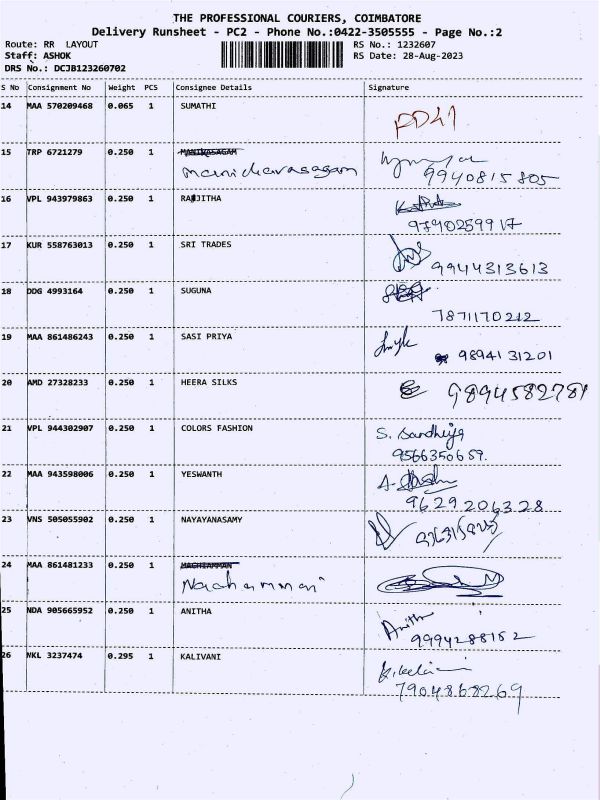 THE PROFESSIONAL COURIERS, COIMBATORE
Delivery Runsheet - PC2 - Phone No.:0422-3505555 - Page No.:2
Route: RR LAYOUT RS No.: 1232607
Staff: ASHOK RS Date: 28-Aug-2023
DRS No.: DCJB123260702
S No Consignment No Weight PCS Consignee Details Signature
14 MAA 570209468 0.065 1 SUMATHI
15 TRP 6721279 0.250 1 MANIKASAGAM
manichavasagam 9940815805
16 VPL 943979863 0.250 1 RAJJITHA
9790259917
17 KUR 558763013 0.250 1 SRI TRADES
9944313613
18 DDG 4993164 0.250 1 SUGUNA
7871170212
19 MAA 861486243 0.250 1 SASI PRIYA
9894131201
20 AMD 27328233 0.250 1 HEERA SILKS
9894582781
21 VPL 944302907 0.250 1 COLORS FASHION
S. Sandhiya
9566350659.
22 MAA 943598006 0.250 1 YESWANTH
9629206328
23 VNS 505055902 0.250 1 NAYAYANASAMY
24 MAA 861481233 0.250 1
25 NDA 905665952 0.250 1 ANITHA
Anitha
9994288152
26 NKL 3237474 0.295 1 KALIVANI
7904868269